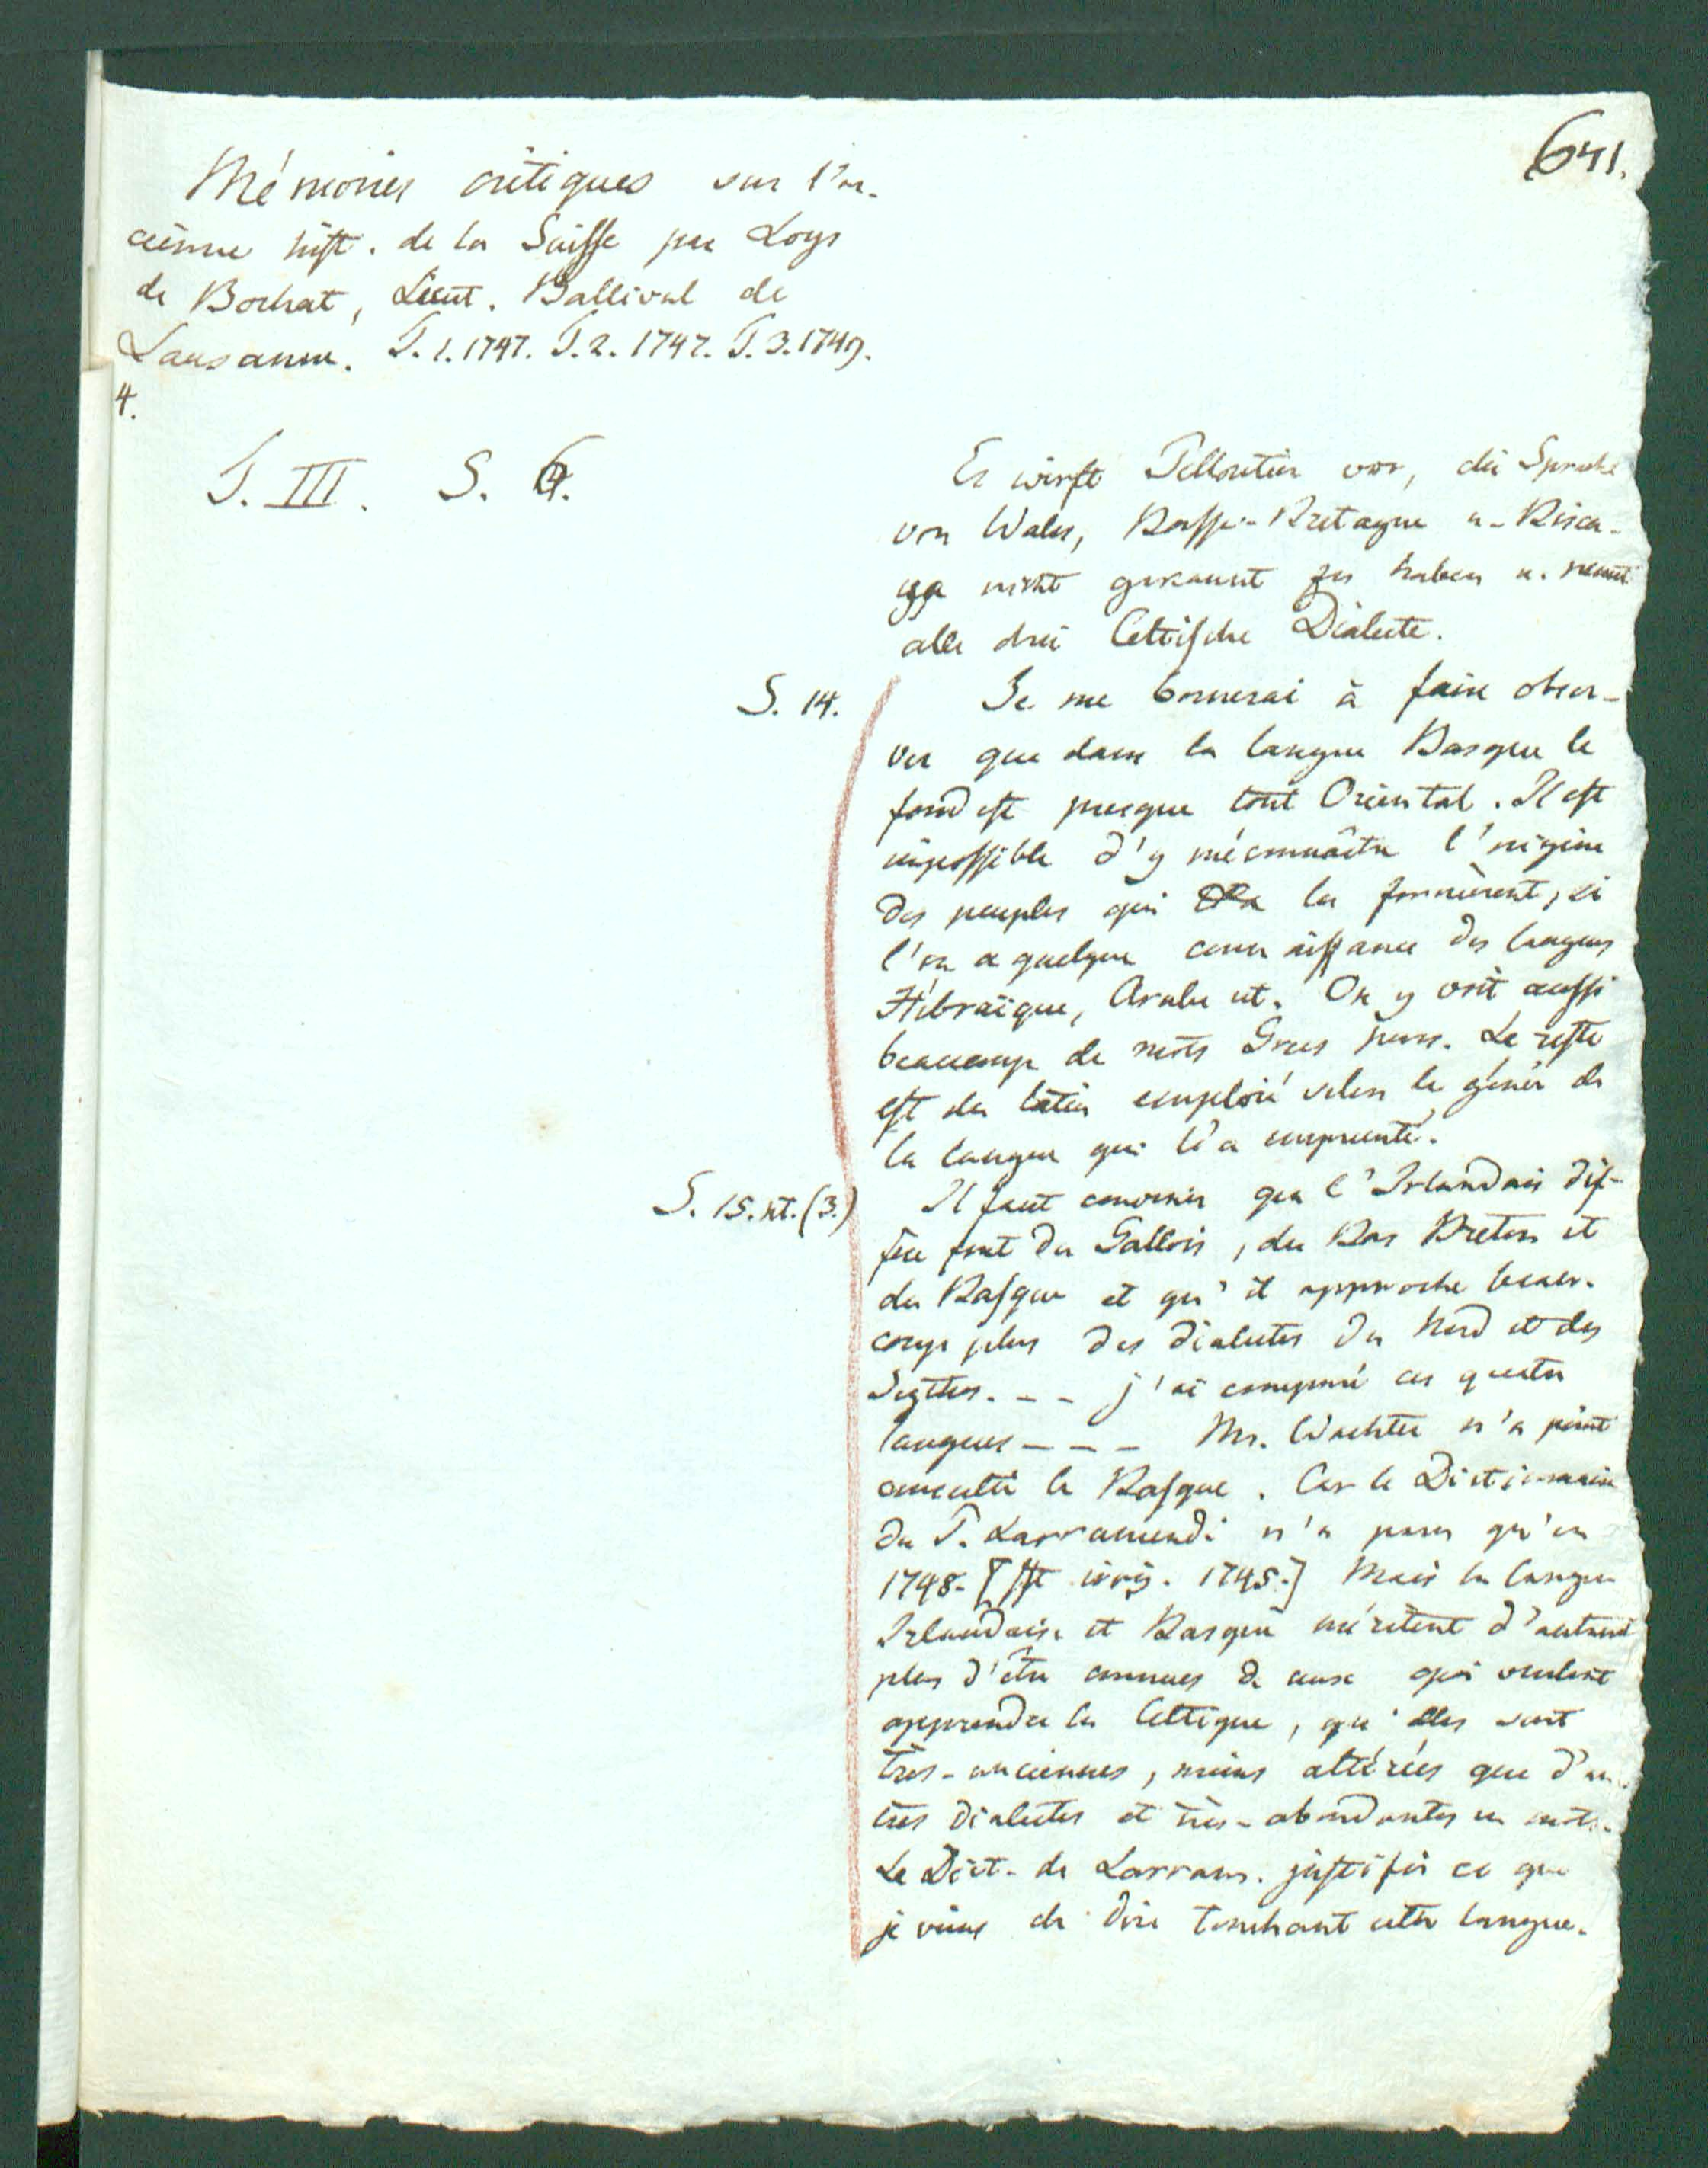 641.
Mémoires critiques sur l'an-
cienne hist. de la Suisse par Loys
de Bochat, Lieut. Ballival de
Lausanne. T. 1. 1747. T. 2. 1747. T. 3. 1749.
4.
T. III. S. 6.
Er wirft Pelloutier vor, die Sprache
von Wales, Basse-Bretagne u. Bisca-
ya nicht gekannt zu haben u. nennt
alle drei Celtische Dialecte.
S. 14.
Je me bornerai à faire obser-
ver que dans la langue Basque le
fond est presque tout Oriental. Il est
impossible d'y méconnaître l'origine
des peuples qui la formèrent, si
l'on a quelque connaissance des langues
Hébraïque, Arabe et. On y voit aussi
beaucoup de mots Grecs purs. Le reste
est du latin emploié selon le génie de
la langue qui l'a emprunté.
S. 15. nt. (3.)
Il faut convenir que l'Irlandais dif-
fère fort du Gallois, du Bas Breton et
du Basque et qu'il approche beau-
coup plus des dialectes du Nord et des
Scythes. - - j'ai comparé ces quatre
langues - - - Mr. Wachter n'a point
consulté le Basque. Car le Dictionnaire
du P. Larramendi n'a paru qu'en
1748. [Ist irrig. 1745.] Mais la langue
Irlandaise et Basque méritent d'autant
plus d'être connues de ceux qui veulent
apprendre le Celtique, qu'elles sont
très-anciennes, moins altérées que d'au-
tres dialectes et très-abondantes en mots.
Le Dict. de Larram. justifie ce que
je viens de dire touchant cette langue.